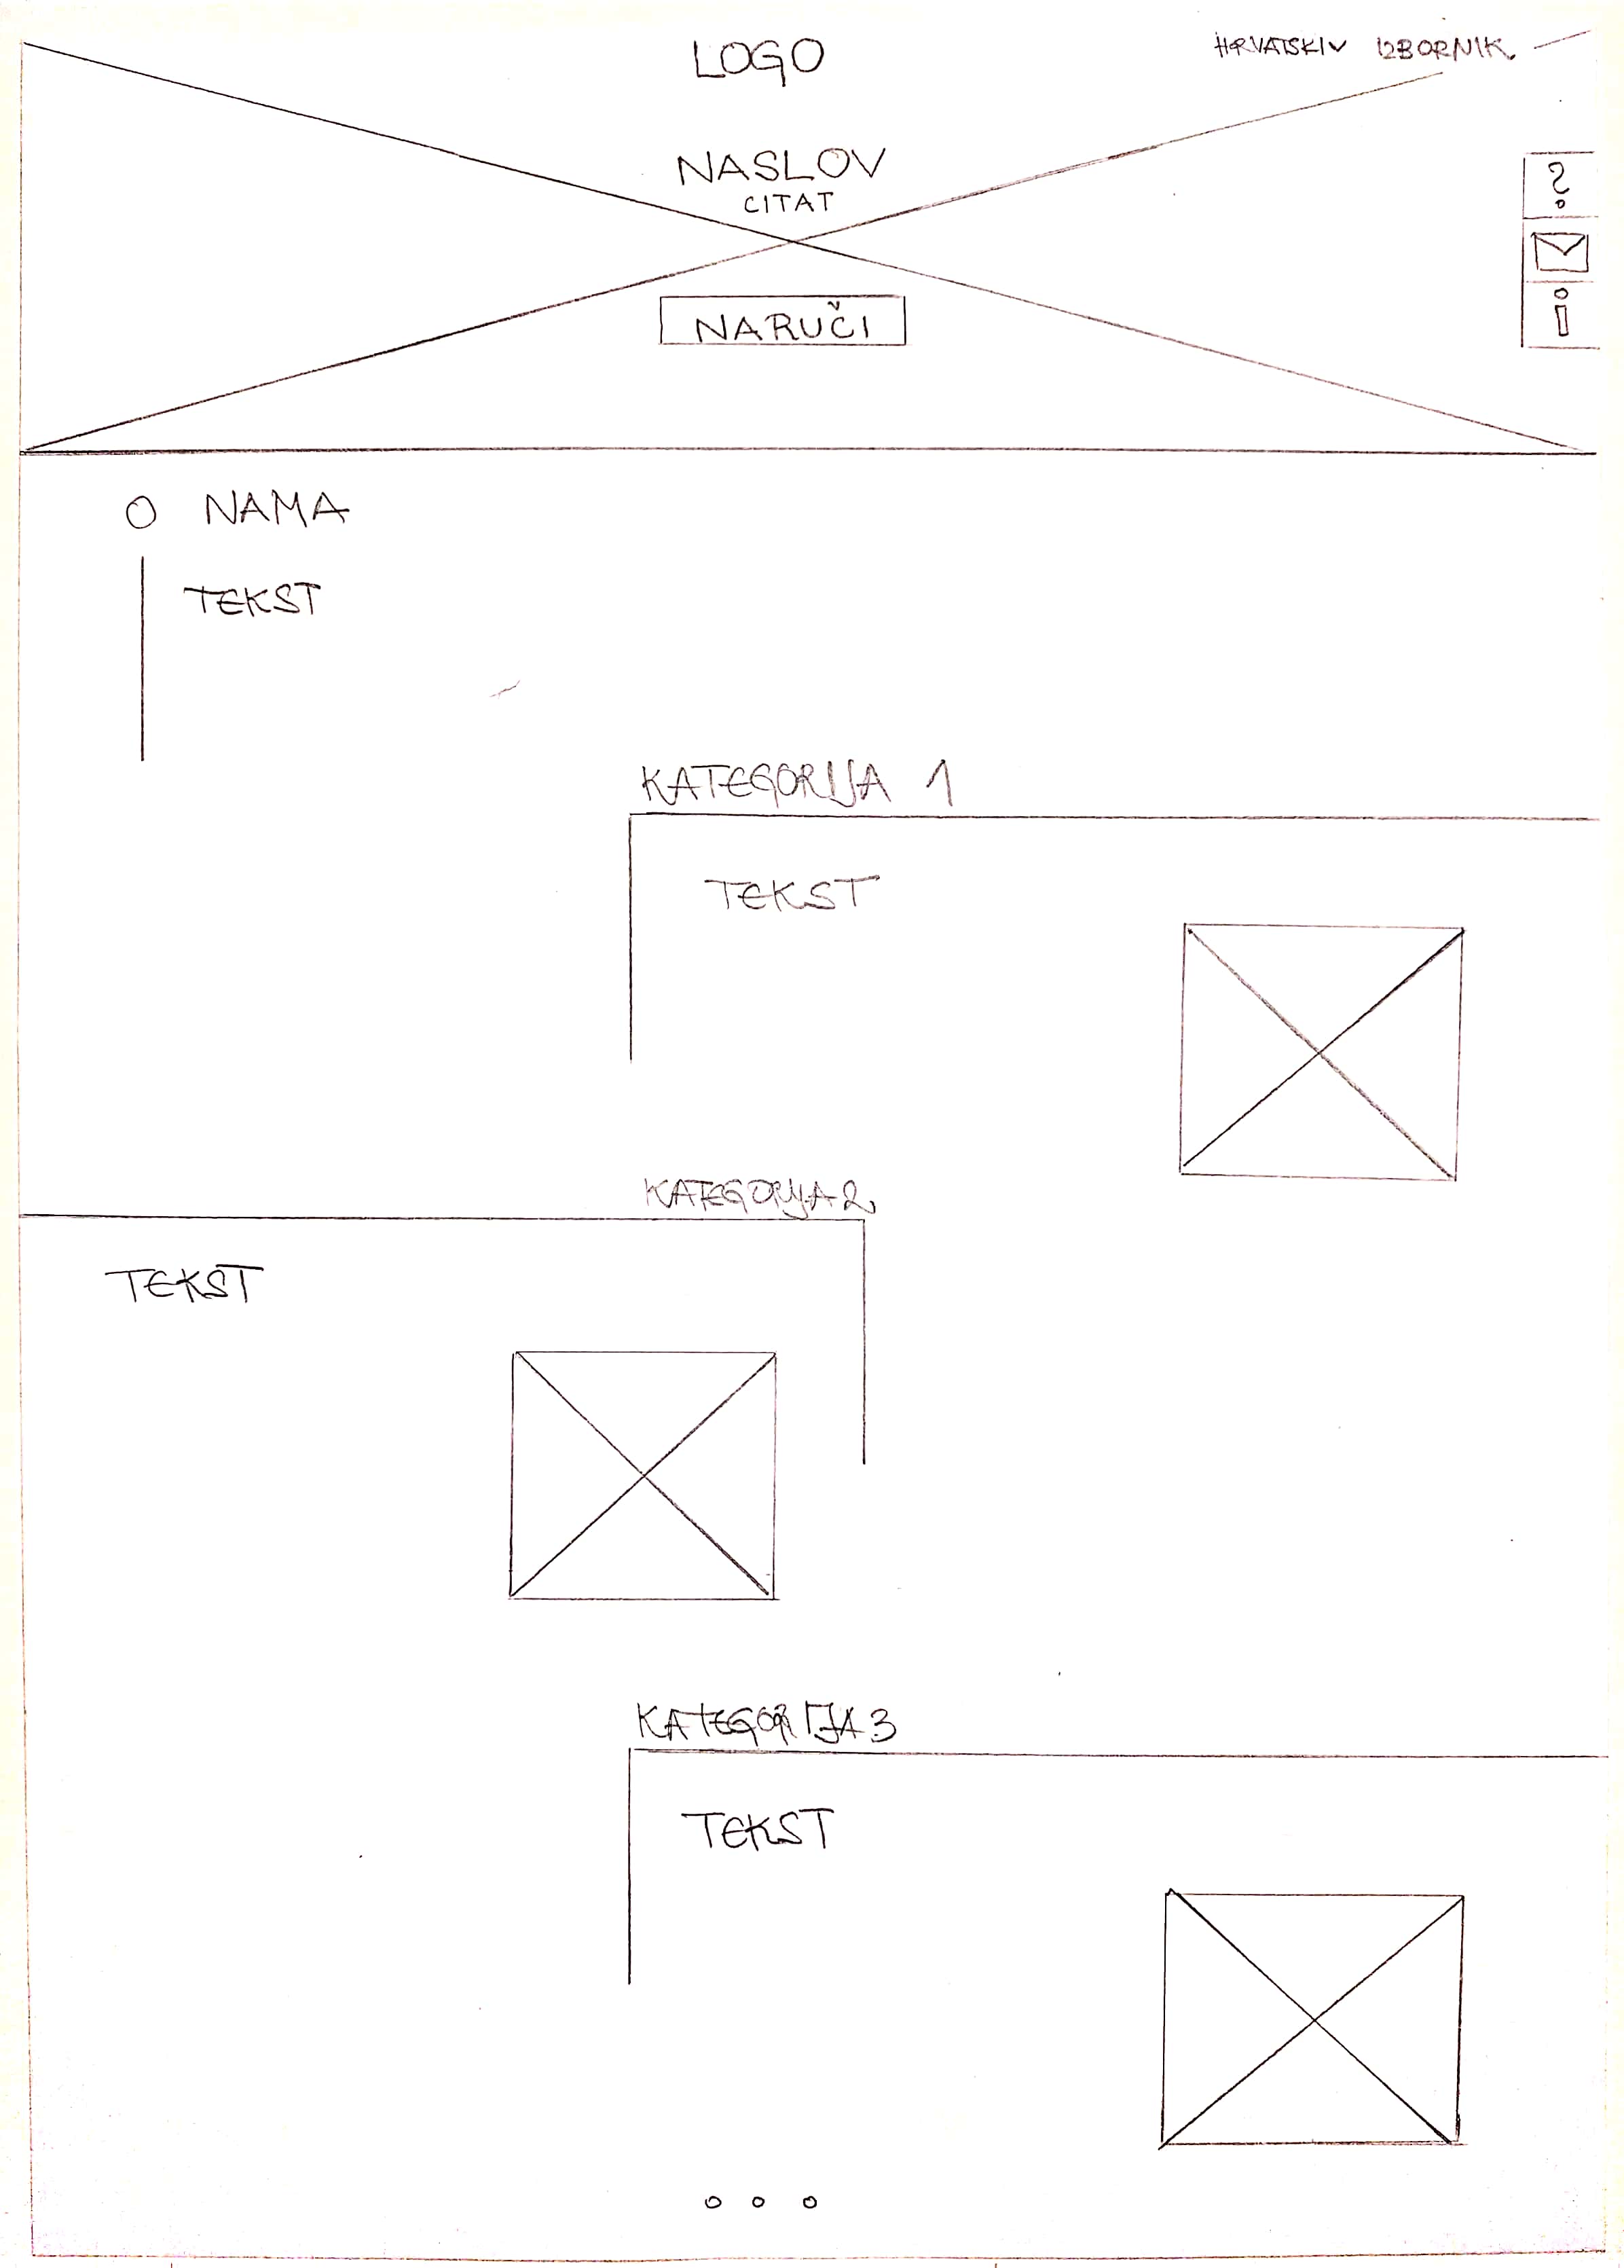 LOGO
HRVATSKI V IZBORNIK
NASLOV
CITAT
?
NARUČI
i
O NAMA
TEKST
KATEGORIJA 1
TEKST
KATEGORIJA 2
TEKST
KATEGORIJA 3
TEKST